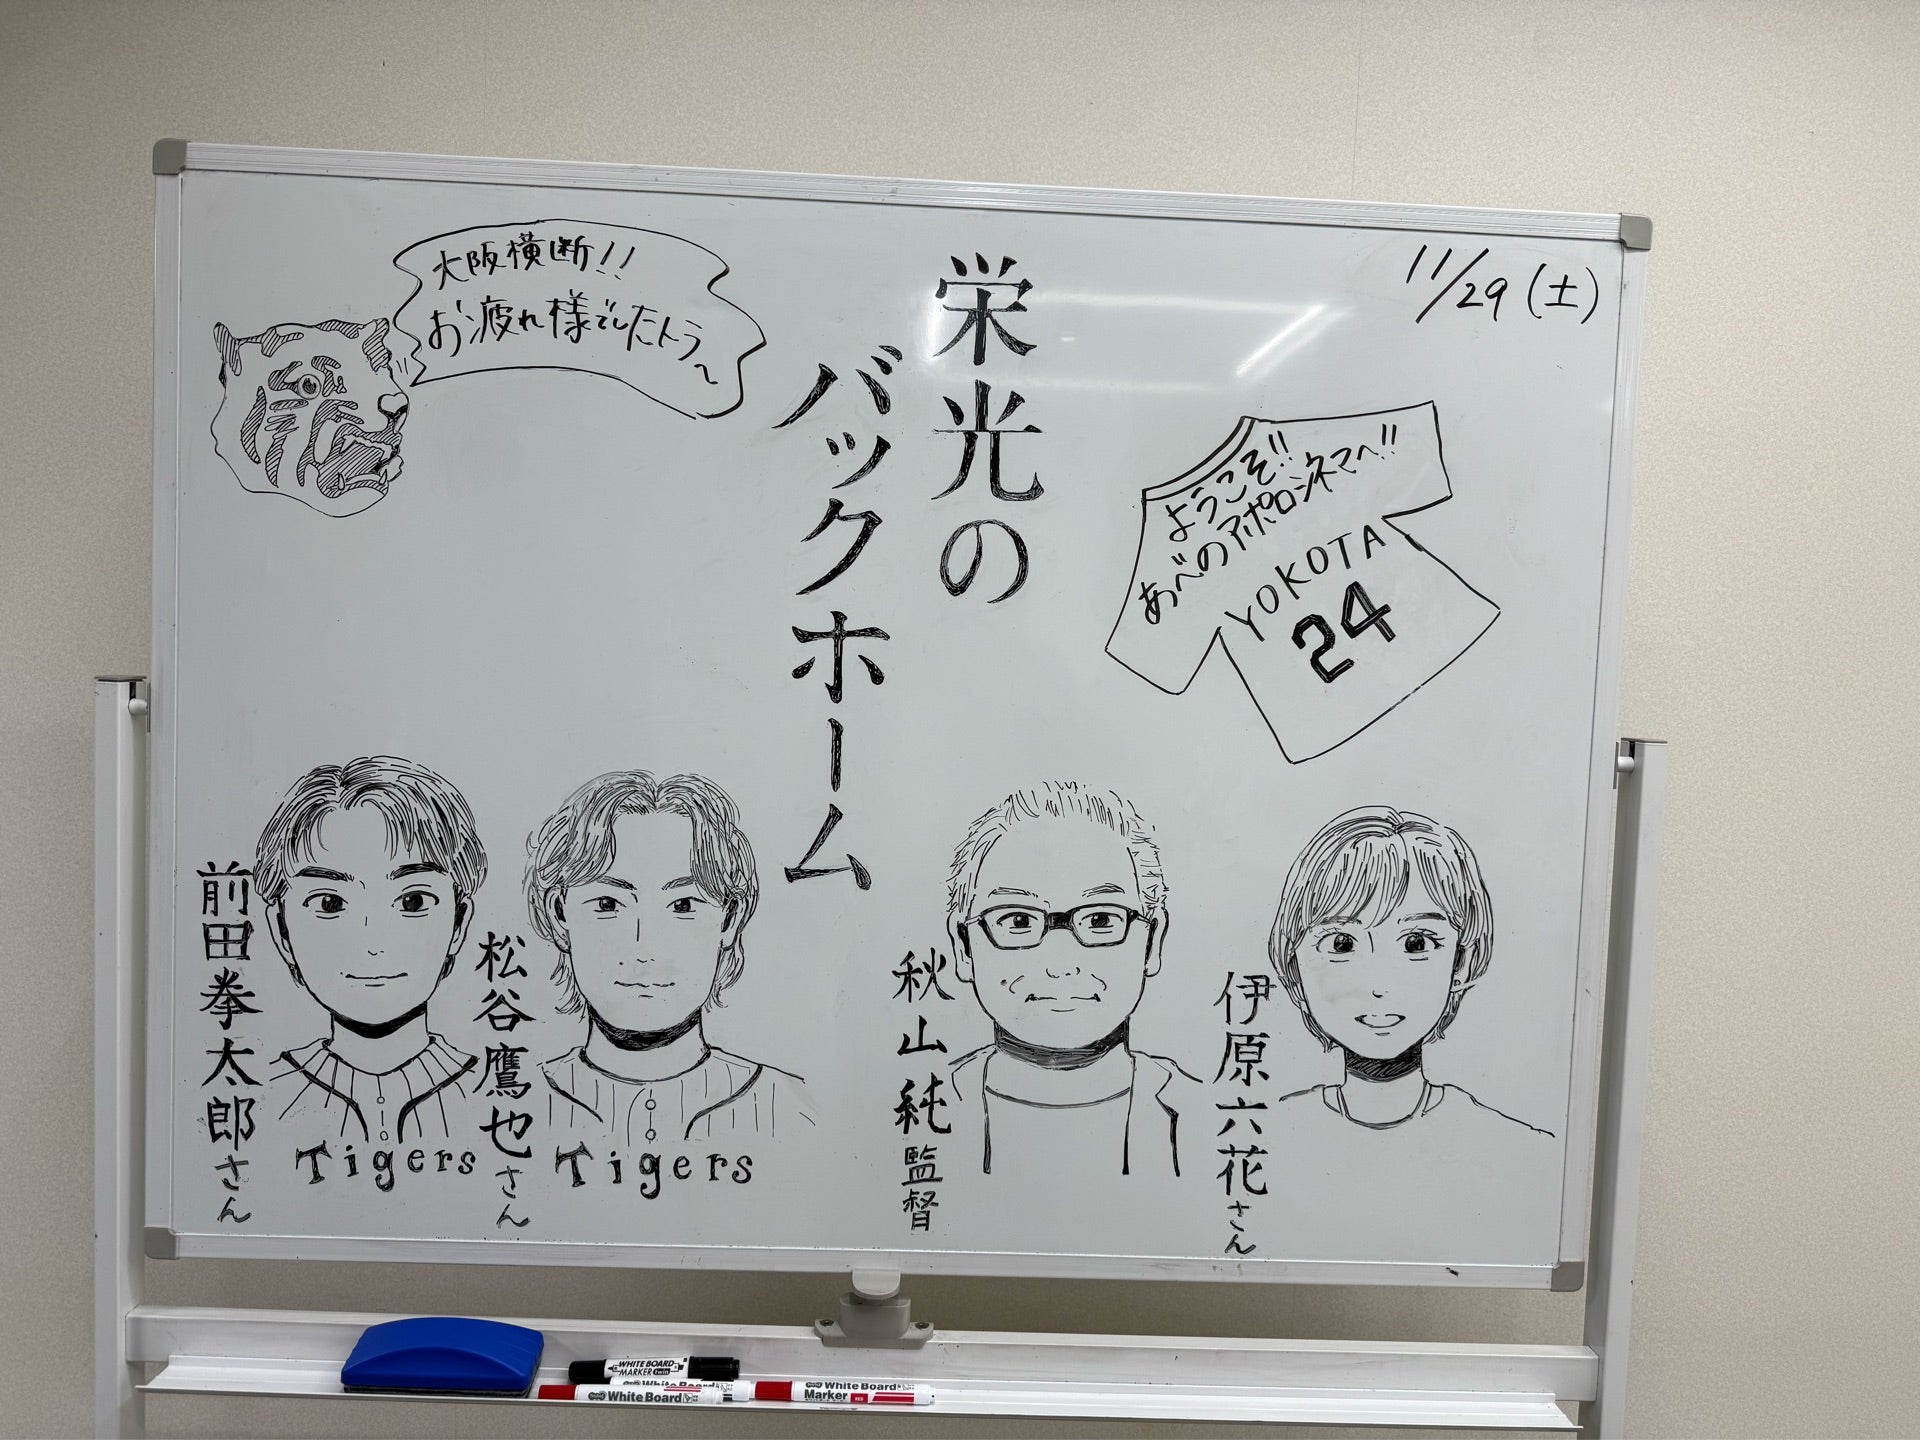 11/29(土)
栄光の
バックホーム
大阪横断!!
お疲れ様でしたトラ~
ようこそ!!
あべのアポロシネマへ!!
YOKOTA
24
前田拳太郎さん
Tigers
松谷鷹也さん
Tigers
秋山純監督
伊原六花さん
WHITE BOARD
MARKER twin
White Board
White Board
Marker
RED